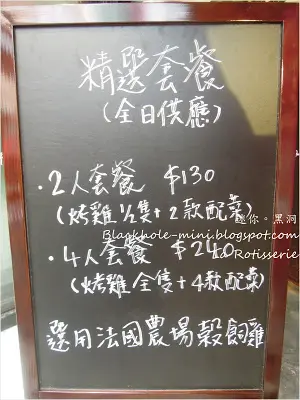 精選套餐
(全日供應)
·2人套餐 $130
(烤雞½隻+2款配菜)
迷你。黑洞
Blackhole-mini.blogspot.com
·4人套餐 $240
La Rotisserie
(烤雞全隻+4款配菜)
選用法國農場穀飼雞